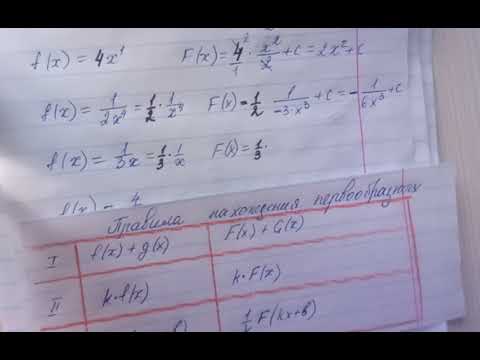 f(x) = 4x¹ F(x) = 4/1 · x²/2 + c = 2x² + c
f(x) = 1/2x⁴ = 1/2 · 1/x⁴ F(x) = 1/2 1/-3·x³ + c = - 1/6x³ + c
f(x) = 1/3x = 1/3 · 1/x F(x) = 1/3 ·
f(x) = 4
Правила нахождения первообразных
I f(x) + g(x) F(x) + G(x)
II k·f(x) k·F(x)
F(kx+b)